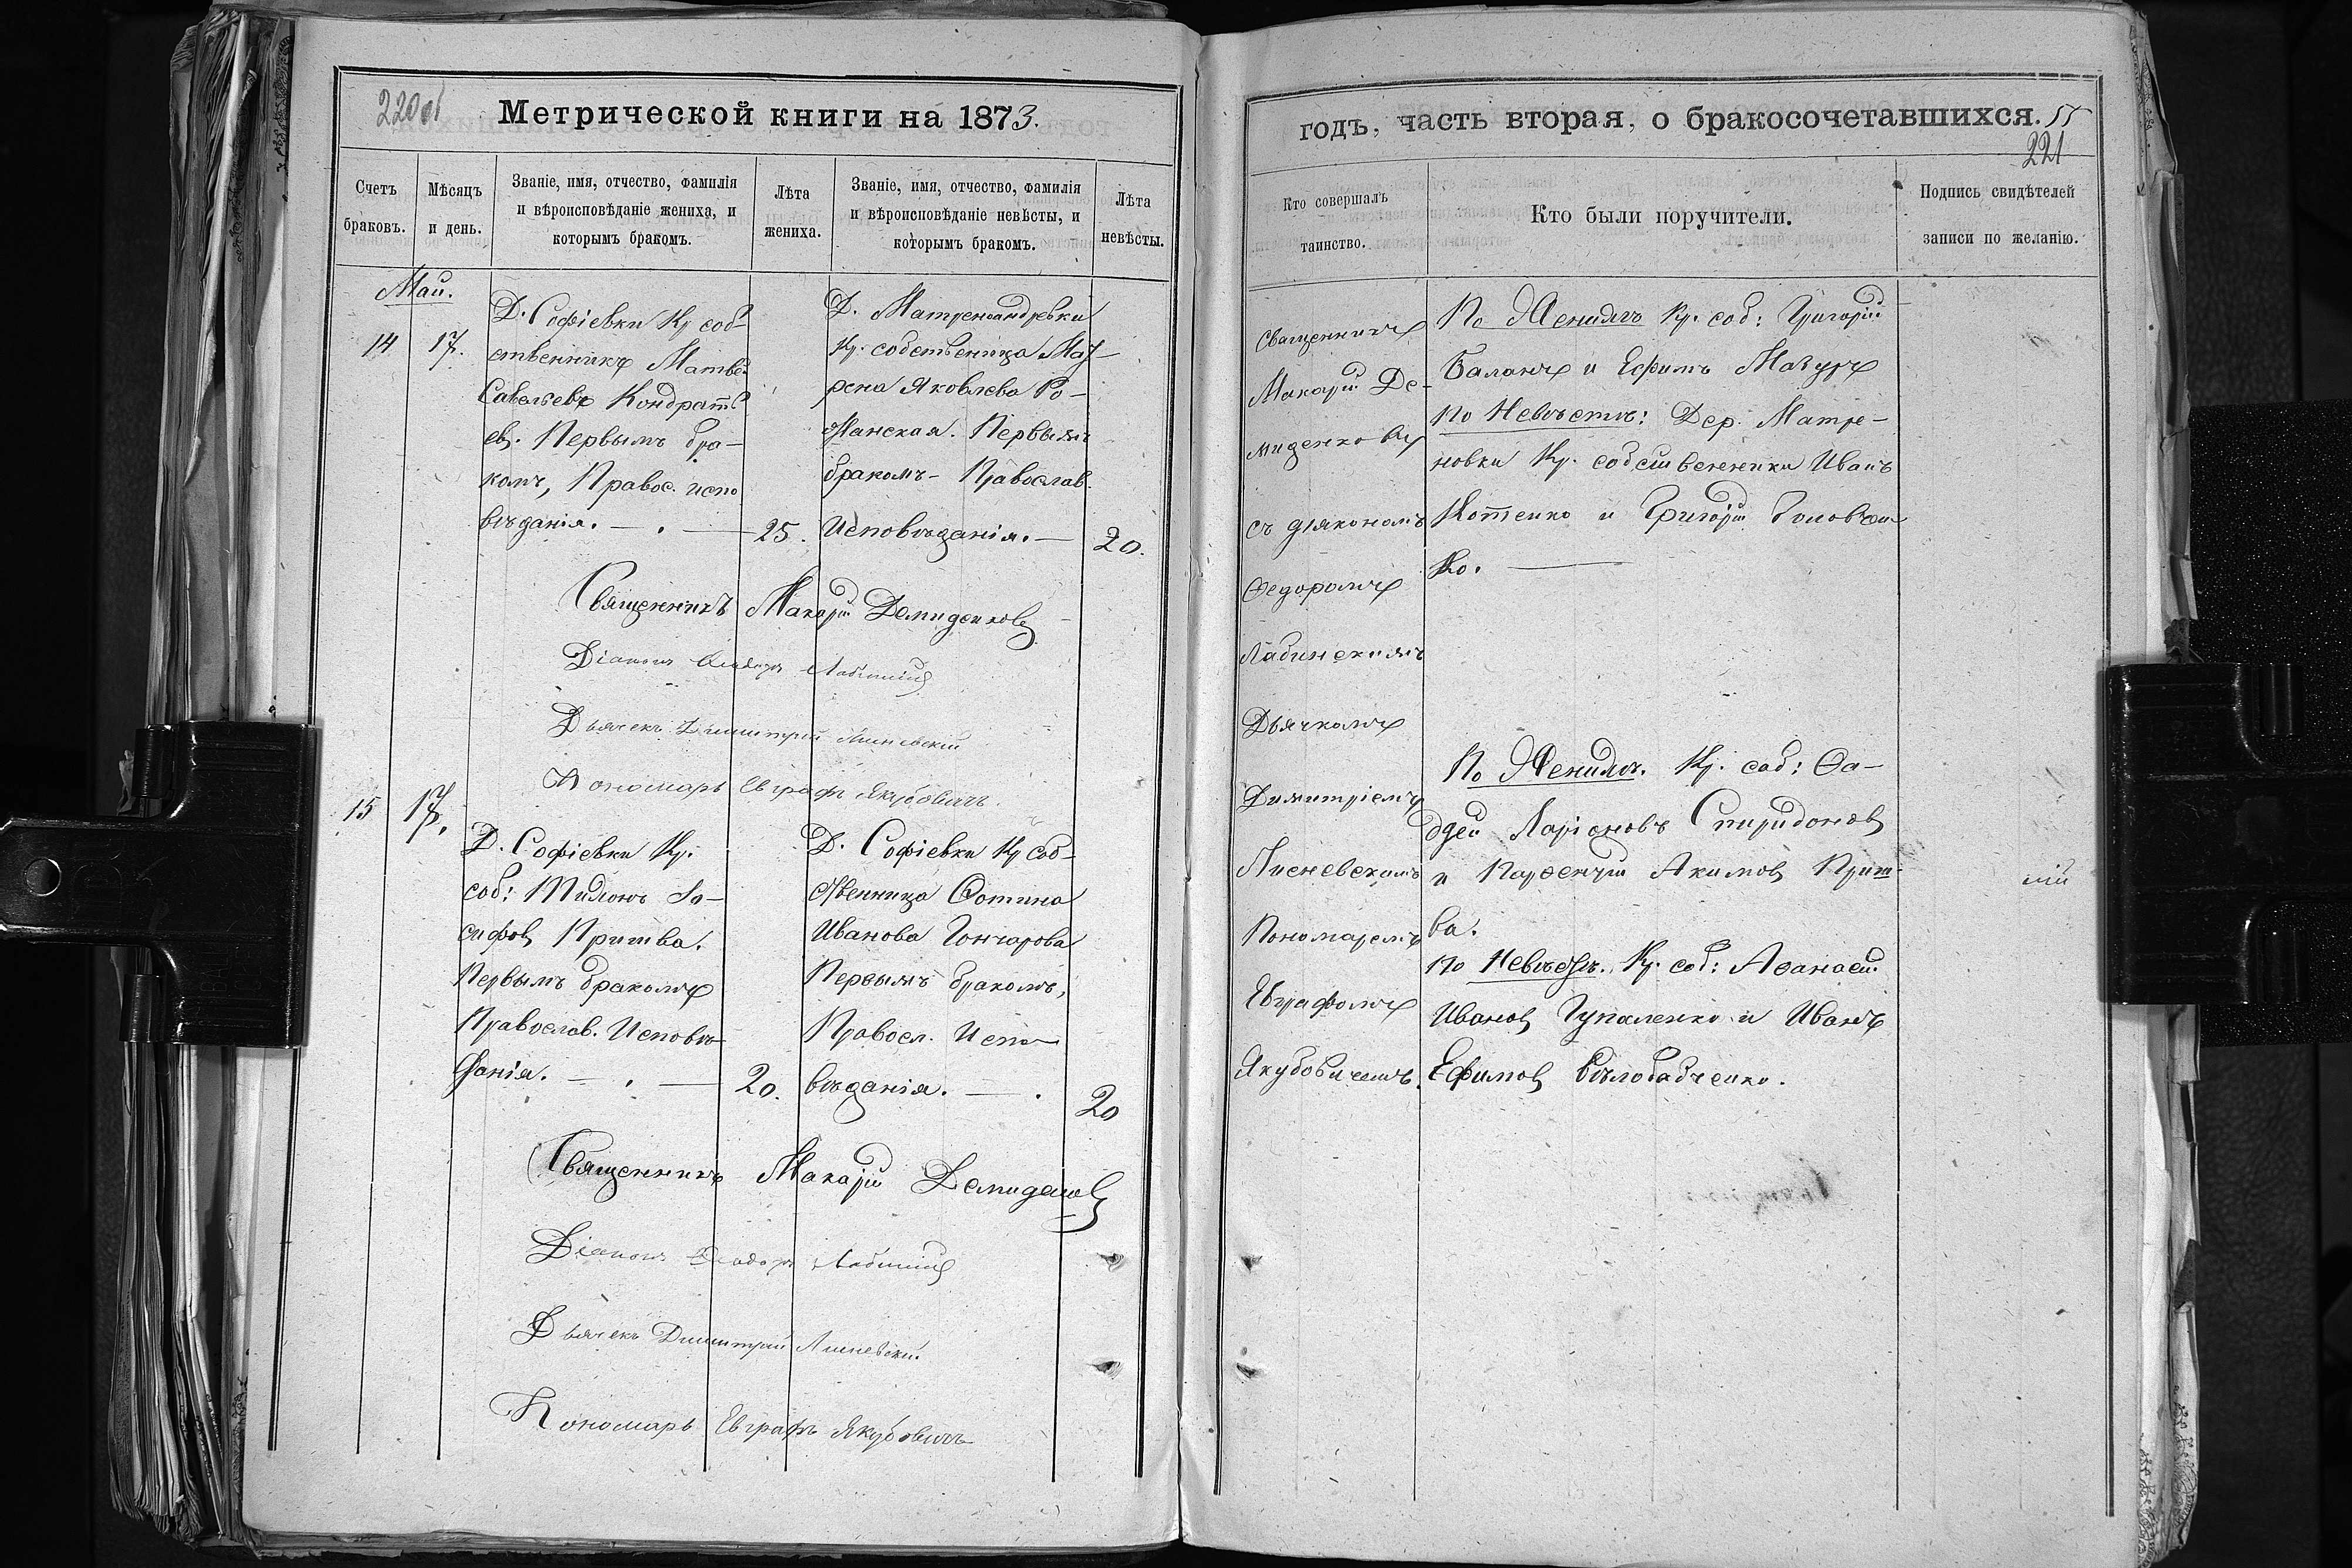 220 об
Метрической книги на 1873.
Счетъ браковъ.
Мѣсяцъ и день.
Званіе, имя, отчество, фамилія и вѣроисповѣданіе жениха, и которымъ бракомъ.
Лѣта жениха.
Званіе, имя, отчество, фамилія и вѣроисповѣданіе невѣсты, и которымъ бракомъ.
Лѣта невѣсты.
Май.
14
17.
Д. Софіевки Кр соб-
ственникъ Матвѣй
Савельевъ Кондрать
евъ. Первымъ бра-
комъ, Правос. испо
вѣданія.
25.
Д.
Кр. собственница Мат
рена Яковлева Ро-
манская. Первымъ
бракомъ - Православ.
Исповѣданія.
20.
Священникъ Макарій Демиденковъ
Діаконъ Ѳеодоръ Лабинскій
Дьячекъ Димитрій Лисневскій
Пономарь Евграфъ Якубовичъ.
15
17.
Д. Софіевки Кр.
соб: Іо-
сифовъ Притва.
Первымъ бракомъ
Православ. Исповѣ
данія.
20.
Д. Софіевки Кр соб-
ственница Фотина
Иванова Гончарова
Первымъ бракомъ,
Правосл. Испо
вѣданія.
20
Священникъ Макарій Демиденковъ
Діаконъ Ѳеодоръ Лабинскій
Дьячекъ Димитрій Лисневскій
Пономарь Евграфъ Якубовичъ
годъ, часть вторая, о бракосочетавшихся.
55
221
Кто совершалъ таинство.
Кто были поручители.
Подпись свидѣтелей записи по желанію.
Священникъ
Макарій Де-
миденковъ
съ діякономъ
Ѳедоромъ
Лабинскимъ
Дьячкомъ
Димитріемъ
Лисневскимъ
Пономаремъ
Евграфомъ
Якубовичемъ.
По Женихѣ Кр. соб: Григорій
Баланъ и Ефимъ Мазуръ
По Невѣстѣ: Дер. Матре-
новки Кр. собственники Иванъ
Котенко и Григорій Головчен
ко.
По Женихѣ. Кр. соб: Ѳа-
ддей Ларіоновъ Спиридоновъ
и Парѳеній Акимовъ Прит-
ва.
По Невѣстѣ. Кр. соб: Аѳанасій
Ивановъ Гупаленко и Иванъ
Ефимовъ Бѣлобабченко.